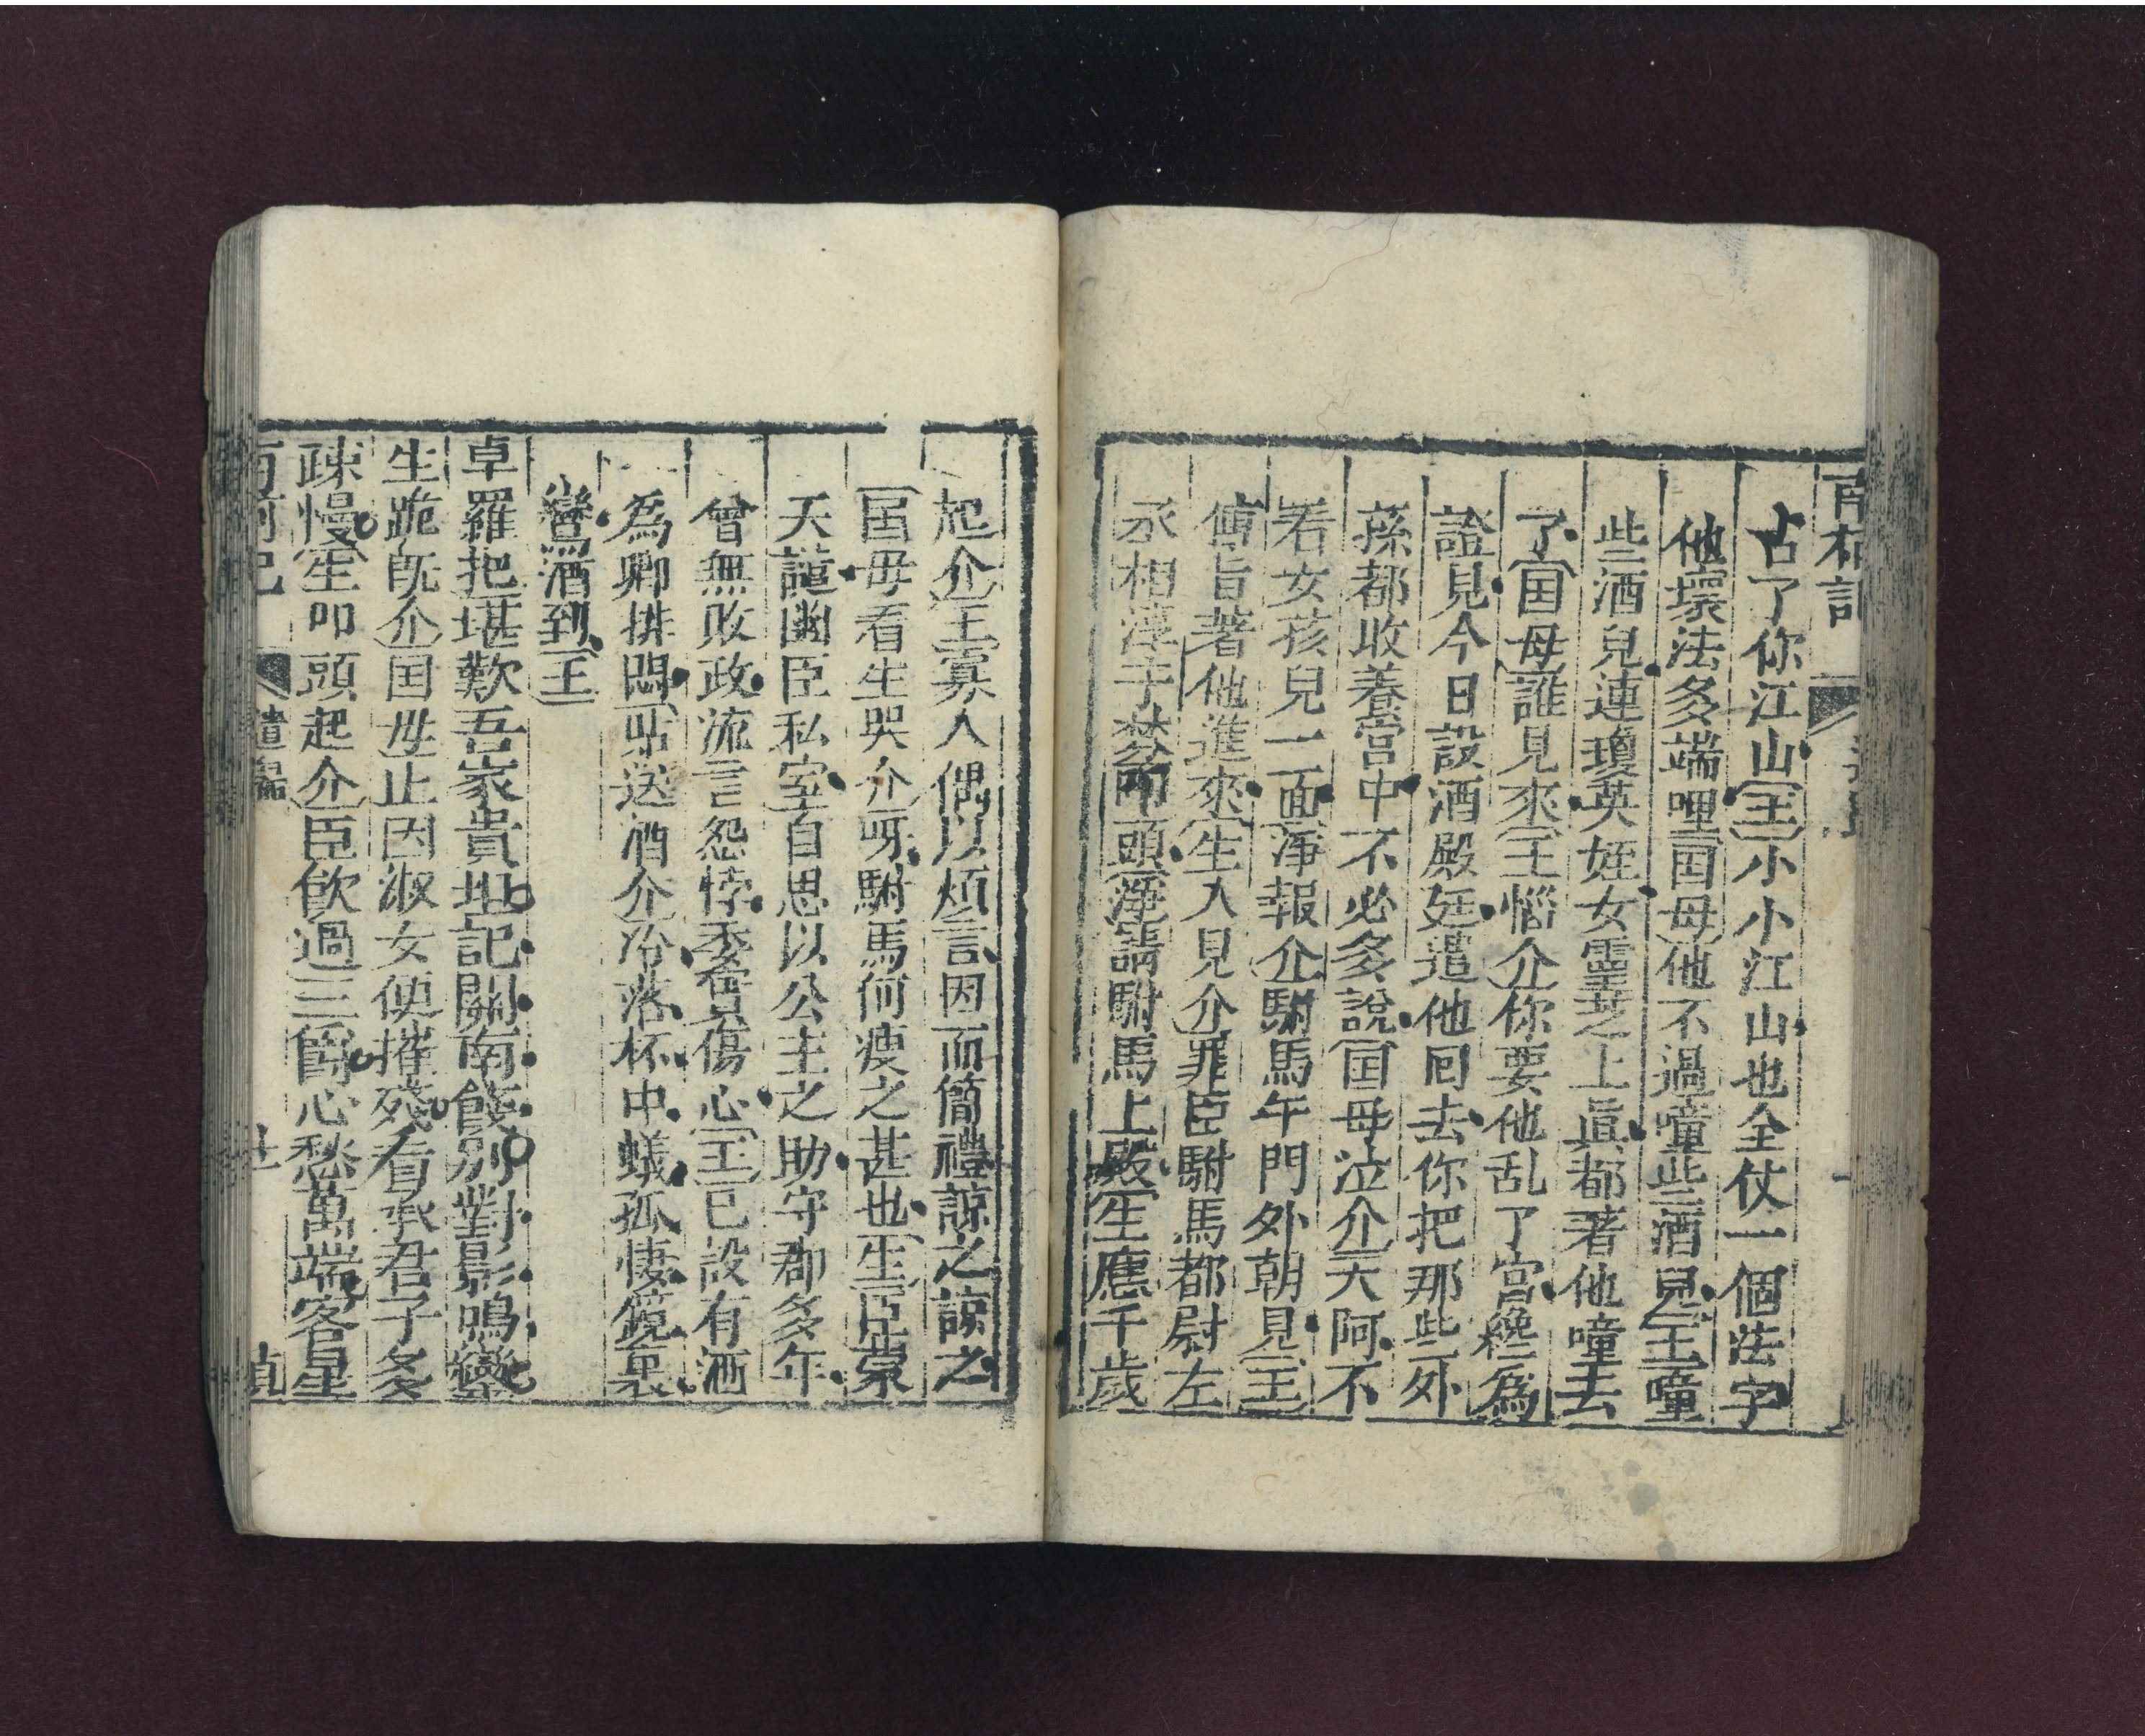 南柯記
占了你江山(王)小小江山也全仗一個法字
他壞法多端哩(国母)他不過噇些酒兒(王)噇
些酒兒連瓊英姪女靈芝上眞都著他噇去
了(国母)誰見來(王惱介)你要他乱了宮纔為
證見今日設酒殿廷遣他囘去你把那些外
孫都收養宮中不必多說(国母泣介)天阿不
看女孩兒一面(淨報介)駙馬午門外朝見(王)
傳旨著他進來(生入見介)罪臣駙馬都尉左
丞相淳于棼叩頭(淨)請駙馬上殿(生應千歲
起介)(王)寡人偶以煩言因而簡禮諒之諒之
(国母看生哭介)呀駙馬何瘦之甚也(生)臣蒙
天譴幽臣私室自思以公主之助守郡多年
曾無敗政流言怨悖委實傷心(王)已設有酒
為卿排悶(貼送酒介)冷落杯中蟻孤悽鏡裏
鸞酒到(王)
卓羅把堪歎吾家貴坦記關南餞別對影鳴鸞
(生跪飲介)(国母)止因淑女便摧殘看承君子多
疎慢(生叩頭起介)臣飲過三爵心愁萬端客星
南柯記 遣生